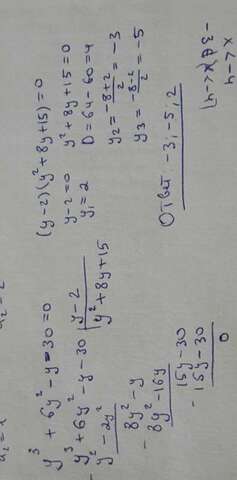 y³ + 6y² - y - 30 = 0
y³ + 6y² - y - 30 | y - 2
- y² - 2y² | y² + 8y + 15
8y² - y
- 8y² - 16y
15y - 30
- 15y - 30
0
(y-2)(y²+8y+15)=0
y-2=0 y²+8y+15=0
y₁=2 D=64-60=4
y₂ = -8+2/2 = -3
y₃ = -8-2/2 = -5
Ответ -3, -5, 2
x<-4